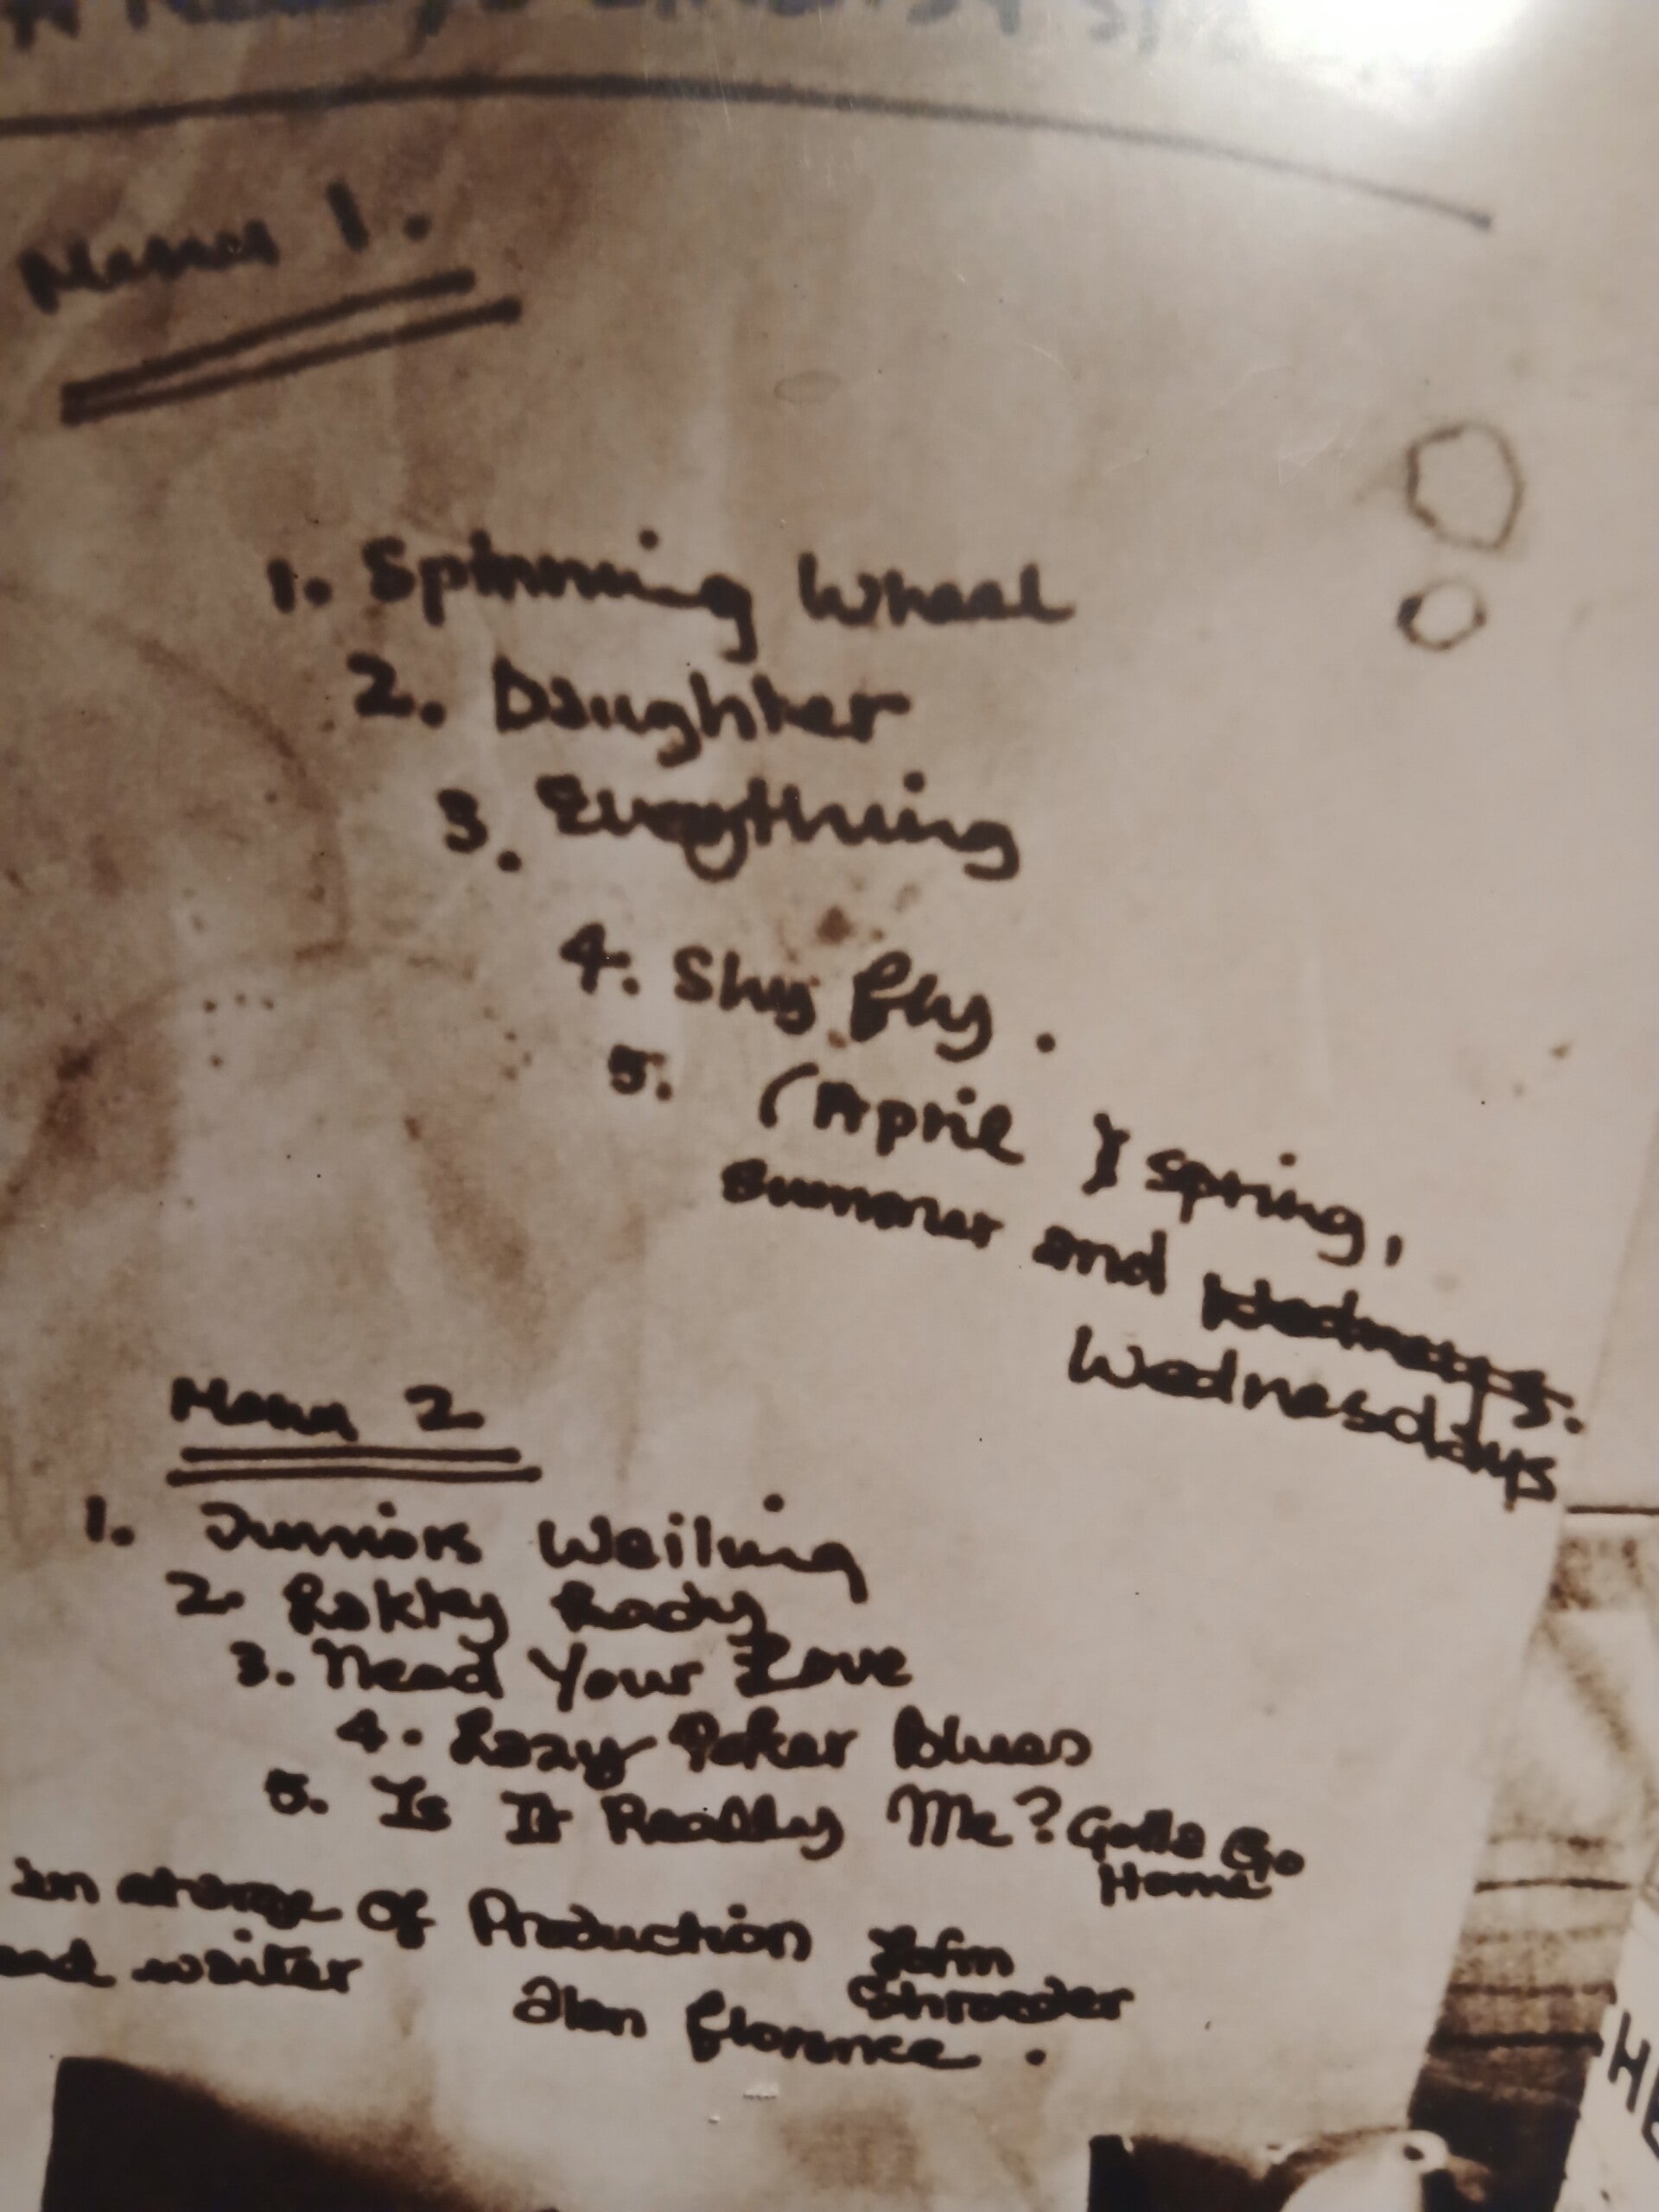 Menu 1.
1. Spinning Wheel
2. Daughter
3. Everything
4. Shy fly.
5. (April) Spring,
Summer and Wednesdays.
Wednesdays
Menu 2
1. Juniors Wailing
2. Lakky Lady
3. Need Your Love
4. Lazy Poker Blues
5. Is It Really Me? Gotta Go
Home
in charge of Production John
Shroeder
waiter
alan florence.
H